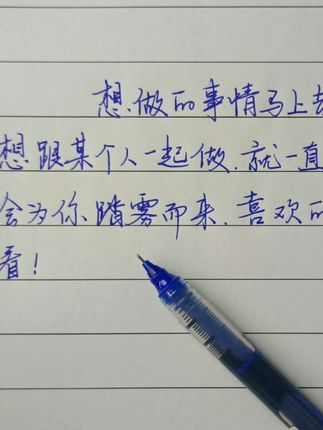 想做的事情马上去
想跟某个人一起做.就一直
会为你踏雾而来.喜欢的
看!